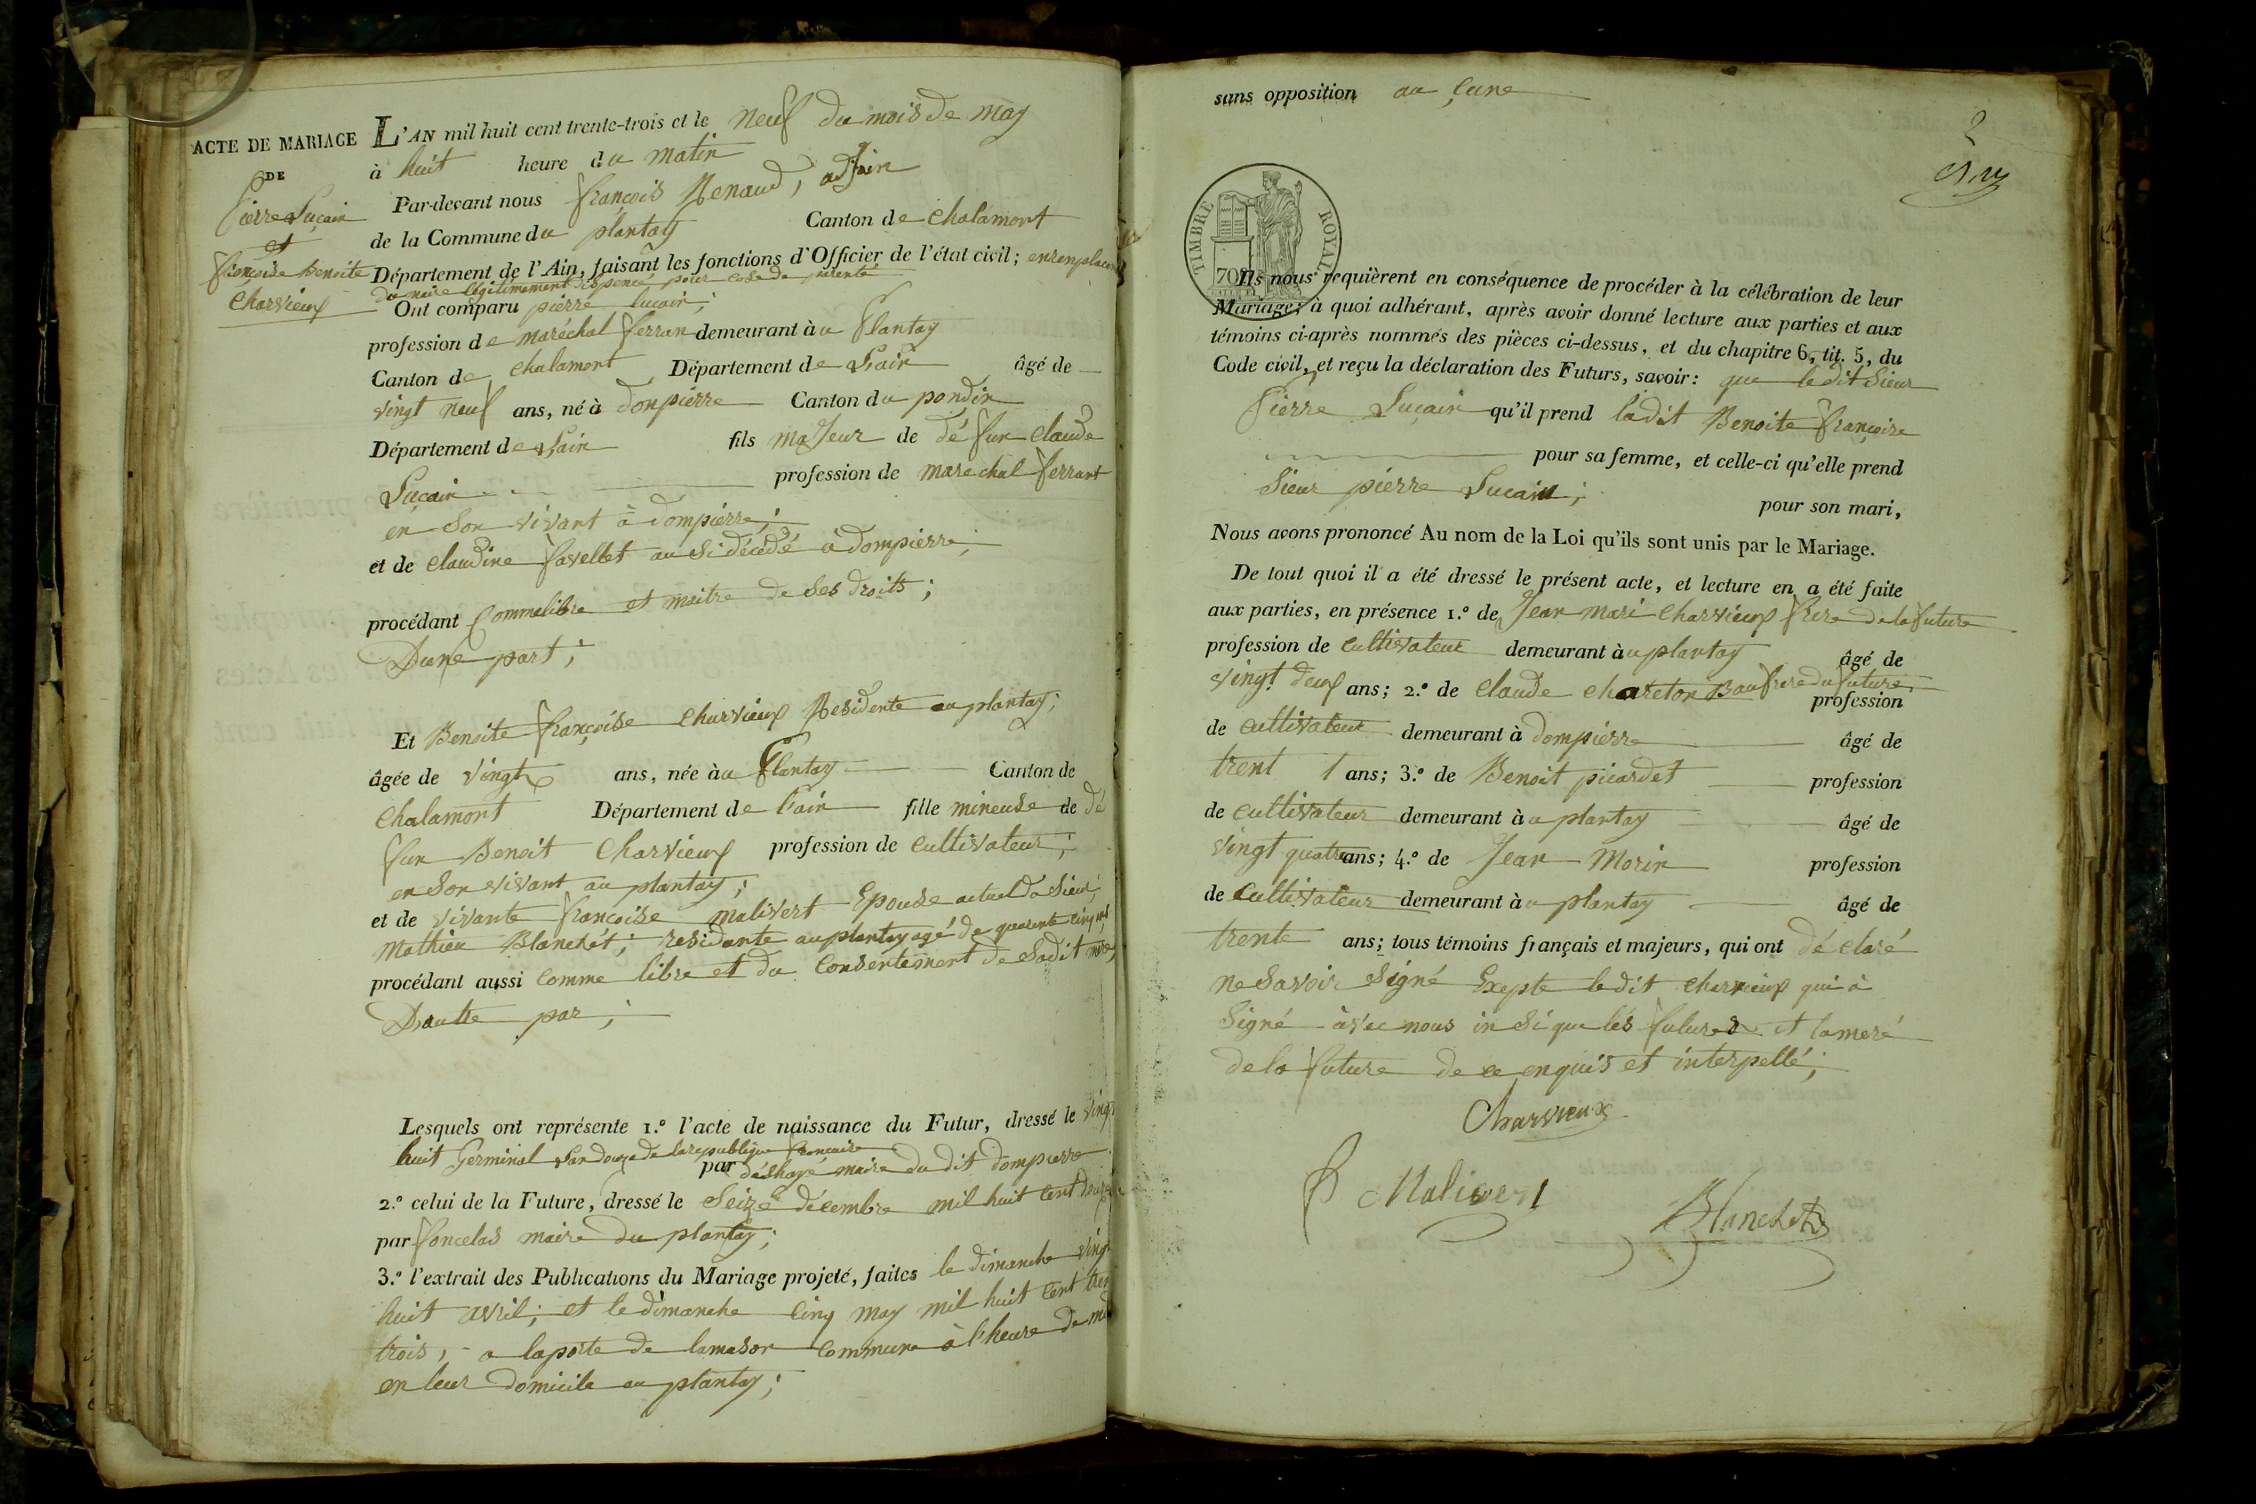 ACTE DE MARIAGE
DE
Pierre Luçain
et
françoise Benoite
Charvieux
L'AN mil huit cent trente-trois et le neuf du mois de may
à huit heure du matin
Par-devant nous françois Renaud, adjoin
de la Commune du plantay Canton de chalamont
Département de l'Ain, faisant les fonctions d'Officier de l'état civil; enremplacem
du maire légitimement dispencé pour cose de parenté
Ont comparu pierre luçain;
profession de maréchal ferran demeurant àu plantay
Canton de chalamont Département de Lain âgé de
vingt neuf ans, né à donpierre Canton du pondin
Département de Lain fils majeur de dé fun claude
Luçain profession de marechal ferrant
en son vivant à dompierre;
et de claudine favellet au si décédé à dompierre;
procédant commelibre et maitre de ses droits;
Dune part;
Et Benoite françoise charvieux Residente au plantay;
âgée de vingt ans, née àu plantay Canton de
chalamont Département de Lain fille mineuse de dé
fun Benoit Charvieux profession de cultivateur;
en son vivant au plantay;
et de vivante françoise malivert Epouse actuel du sieur;
mathieu Blanchét; residante au plantay agé de quarente cinq ans,
procédant aussi comme libre et du consentement de sadit mere,
Dautte par;
Lesquels ont représente 1.º l'acte de naissance du Futur, dressé le vingt
huit Germinal Lan douze de larepublique francaise
par déshayé maire du dit dompierre
2.º celui de la Future, dressé le Seize décembre mil huit cent douze
par foncelas maire du plantay;
3.º l'extrait des Publications du Mariage projeté, faites le dimanche ving
huit avril; et le dimanche cinq may mil huit cent tren
trois, a laposte de lamason commune à l'heure de midi
en leur domicile au plantay;
sans opposition au cune
TIMBRE ROYAL
70
Ils nous requièrent en conséquence de procéder à la célébration de leur
Mariage; à quoi adhérant, après avoir donné lecture aux parties et aux
témoins ci-après nommés des pièces ci-dessus, et du chapitre 6, tit. 5, du
Code civil, et reçu la déclaration des Futurs, savoir: que ledit Sieur
Pierre Luçain qu'il prend ladit Benoite françoise
pour sa femme, et celle-ci qu'elle prend
Sieur pierre Lucain;
pour son mari,
Nous avons prononcé Au nom de la Loi qu'ils sont unis par le Mariage.
De tout quoi il a été dressé le présent acte, et lecture en a été faite
aux parties, en présence 1.º de Jean mari charvieux frere de la future
profession de cultivateur demeurant àu plantay âgé de
vingt deux ans; 2.º de claude chareton Baufrere du future,
profession
de cultivateur demeurant à dompierre âgé de
trent 1 ans; 3.º de Benoit picardet profession
de cultivateur demeurant àu plantay âgé de
vingt quatre ans; 4.º de Jean Morin profession
de cultivateur demeurant àu plantay âgé de
trente ans; tous témoins français et majeurs, qui ont dé claré
ne savoir signé Exepte ledit charvieux qui à
signé àvec nous in si que les futures et la meré
de la future de ce enquis et interpellé;
Charvieux
f Malivert
Blanchet